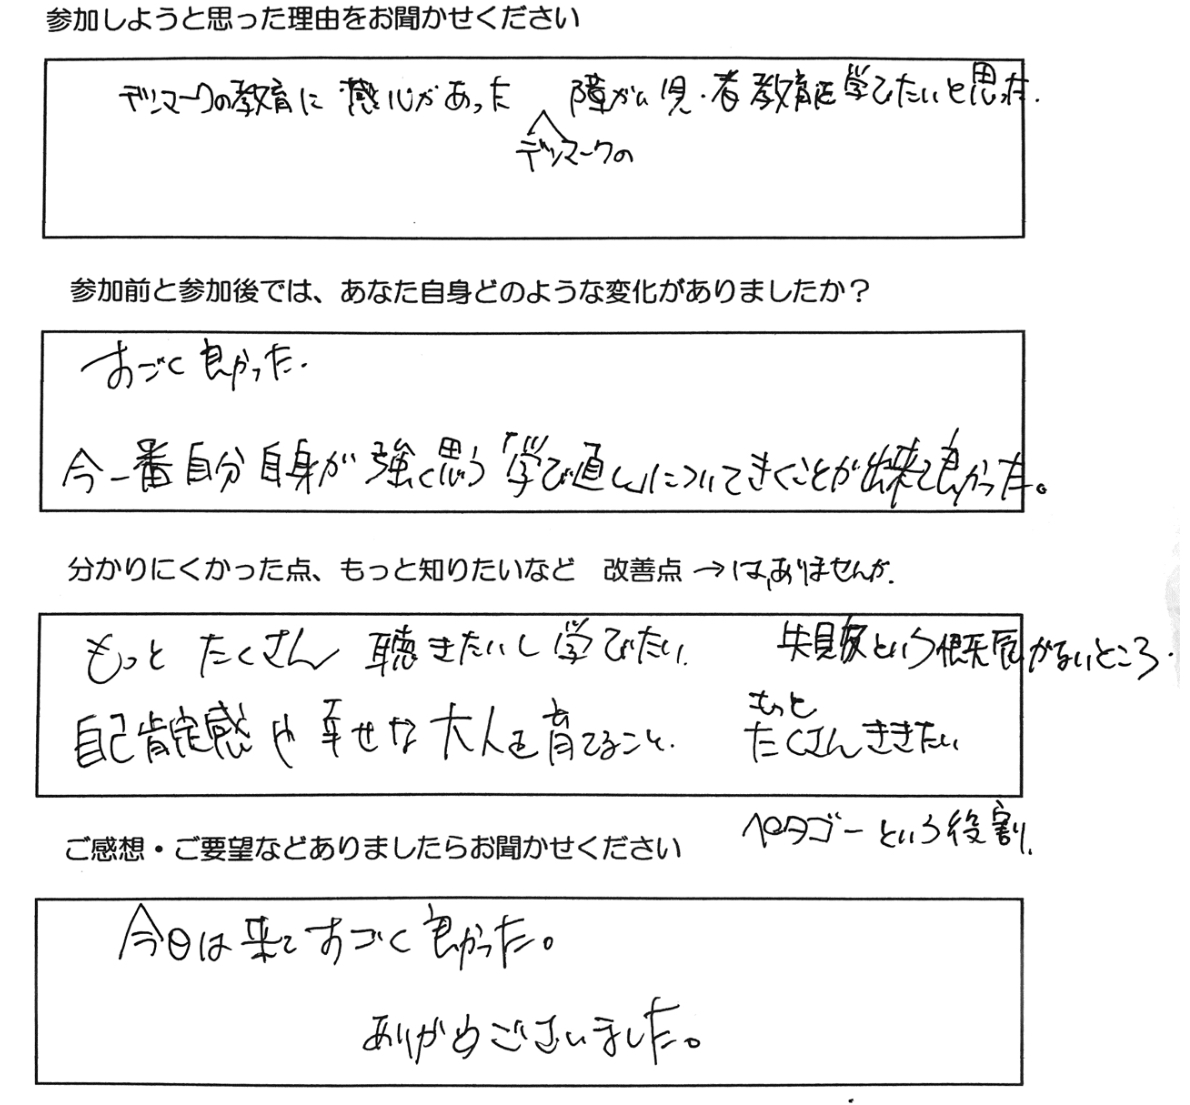 参加しようと思った理由をお聞かせください
デンマークの教育に感心があった 障がい児・者教育を学びたいと思った.
デンマークの
参加前と参加後では、あなた自身どのような変化がありましたか？
すごく良かった.
今一番自分自身が強く思う「学び直し」についてきくことが出来て良かった。
分かりにくかった点、もっと知りたいなど 改善点→は、ありませんが.
もっと たくさん 聴きたいし 学びたい. 失敗という概念がないところ.
自己肯定感や幸せな大人を育てること. もっと
たくさんききたい
ペタゴーという役割.
ご感想・ご要望などありましたらお聞かせください
今日は来てすごく良かった。
ありがとうございました。